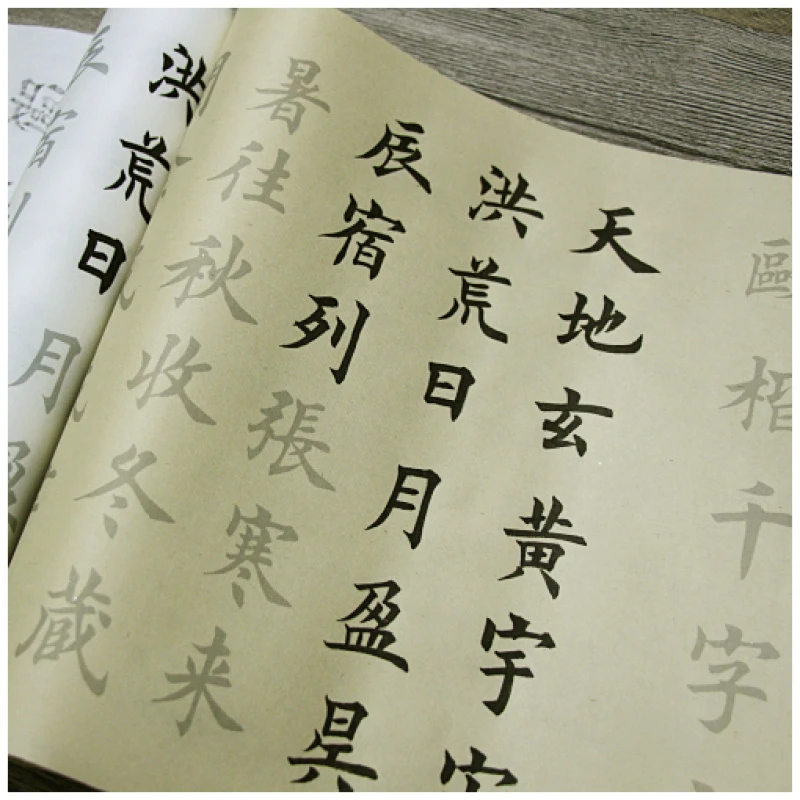 歐楷千字
天地玄黄宇
洪荒日月盈昃
辰宿列張寒来
暑往秋收冬藏
洪荒日月